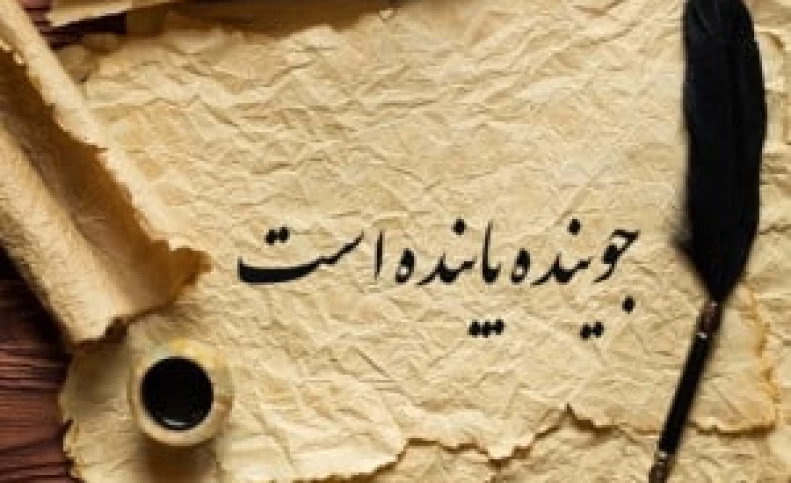 جوینده یابنده است